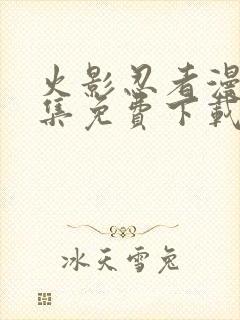 火影忍者漫
集免费下载
冰天雪兔